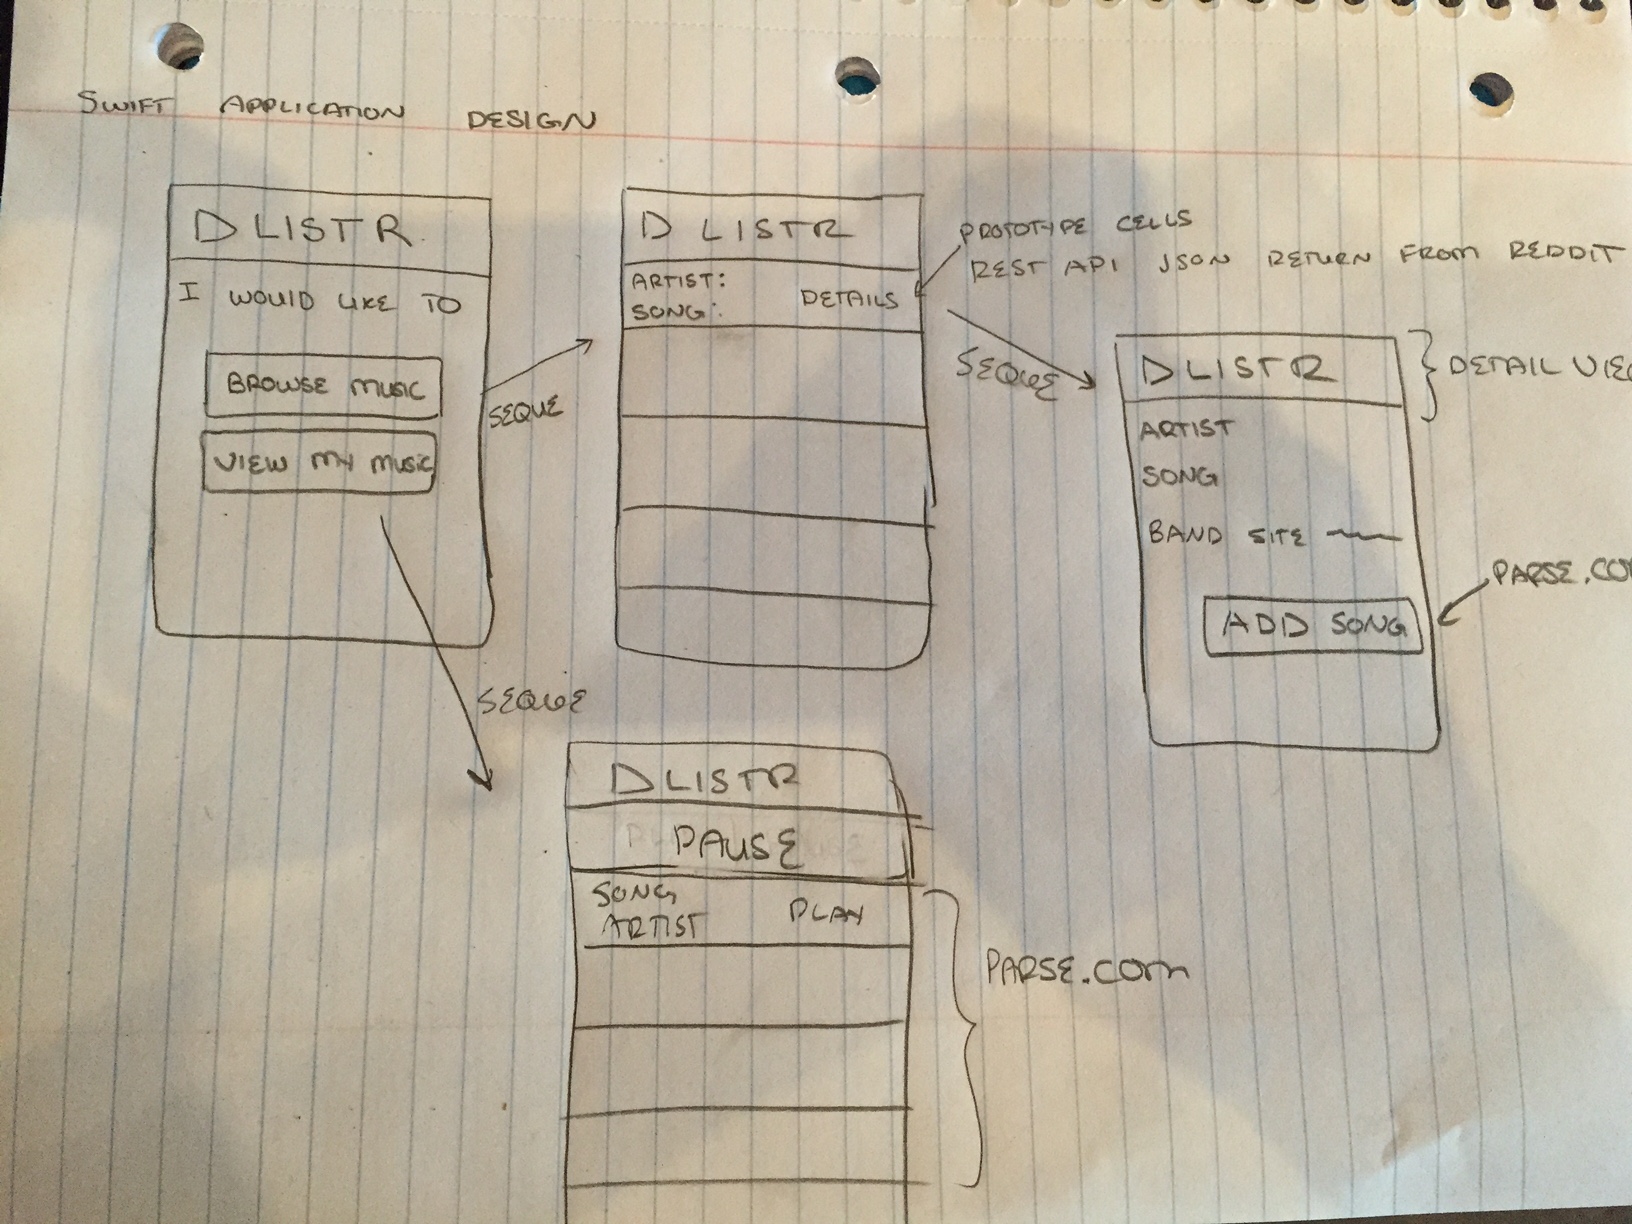 SWIFT APPLICATION DESIGN
DLISTR
I WOULD LIKE TO
BROWSE MUSIC
VIEW MY MUSIC
SEQUE
SEQUE
DLISTR
ARTIST:
SONG:
DETAILS
PROTOTYPE CELLS
REST API JSON RETURN FROM REDDIT
SEQUE
DLISTR
ARTIST
SONG
BAND SITE
ADD SONG
DETAIL VIE
PARSE.CO
DLISTR
PAUSE
SONG
ARTIST
PLAY
PARSE.COM